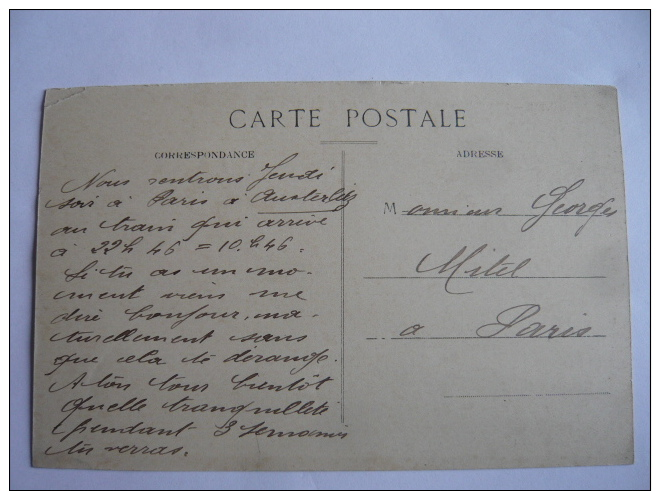 CARTE POSTALE
CORRESPONDANCE
Nous rentrons Jeudi
soir à Paris à Austerlitz
au train qui arrive
à 22h 46 = 10.h46.
Si tu as un mo-
ment viens me
dire bonjour, na-
turellement sans
que cela te dérange.
A ton tour bientôt
Quelle tranquillité
pendant 3 semaines
tu verras.
ADRESSE
Monsieur Georges
Mitel
a Paris